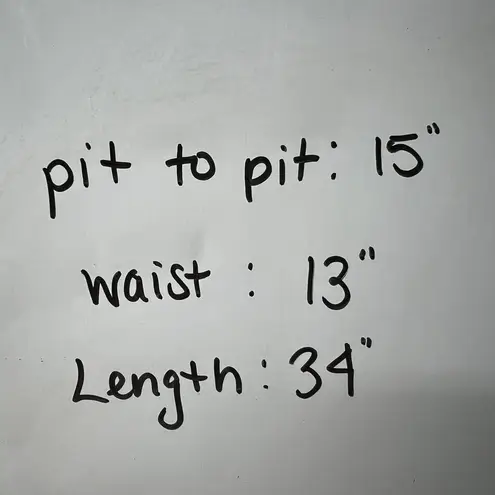 pit to pit: 15"
waist : 13"
Length: 34"